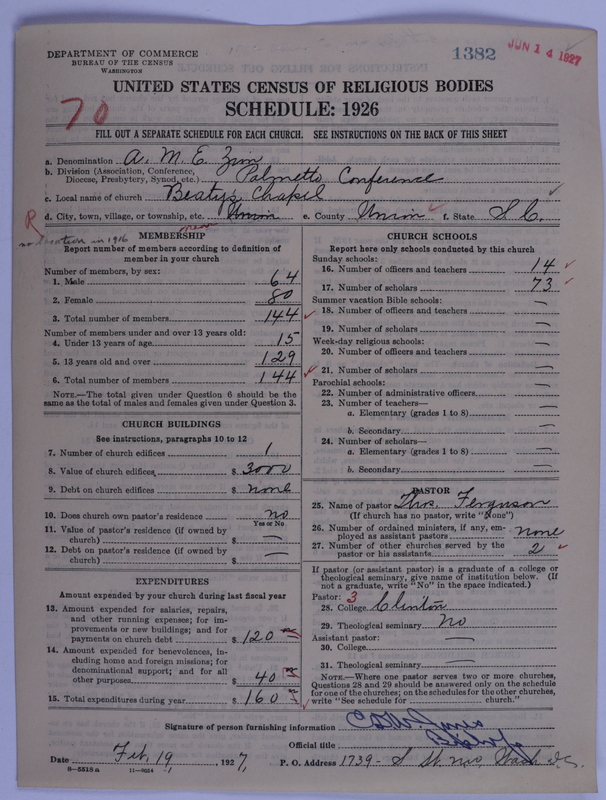 DEPARTMENT OF COMMERCE
BUREAU OF THE CENSUS
WASHINGTON
1382
JUN 14 1927
UNITED STATES CENSUS OF RELIGIOUS BODIES
SCHEDULE: 1926
70
FILL OUT A SEPARATE SCHEDULE FOR EACH CHURCH. SEE INSTRUCTIONS ON THE BACK OF THIS SHEET
a. Denomination A. M. E. Zion
b. Division (Association, Conference, Diocese, Presbytery, Synod, etc.) Palmetto Conference
c. Local name of church Beatys Chapel
d. City, town, village, or township, etc. Union e. County Union f. State S. C.
R
no location in 1916
near
MEMBERSHIP
Report number of members according to definition of
member in your church
Number of members, by sex:
1. Male 64
2. Female 80
3. Total number of members 144
Number of members under and over 13 years old:
4. Under 13 years of age 15
5. 13 years old and over 129
6. Total number of members 144
NOTE.—The total given under Question 6 should be the
same as the total of males and females given under Question 3.
CHURCH BUILDINGS
See instructions, paragraphs 10 to 12
7. Number of church edifices 1
8. Value of church edifices $ 3000
9. Debt on church edifices $ none
10. Does church own pastor's residence no
Yes or No
11. Value of pastor's residence (if owned by
church) $ —
12. Debt on pastor's residence (if owned by
church) $ —
EXPENDITURES
Amount expended by your church during last fiscal year
13. Amount expended for salaries, repairs,
and other running expenses; for im-
provements or new buildings; and for
payments on church debt $ 120
14. Amount expended for benevolences, in-
cluding home and foreign missions; for
denominational support; and for all
other purposes $ 40
15. Total expenditures during year $ 160
CHURCH SCHOOLS
Report here only schools conducted by this church
Sunday schools:
16. Number of officers and teachers 14
17. Number of scholars 73
Summer vacation Bible schools:
18. Number of officers and teachers —
19. Number of scholars —
Week-day religious schools:
20. Number of officers and teachers —
21. Number of scholars —
Parochial schools:
22. Number of administrative officers —
23. Number of teachers—
a. Elementary (grades 1 to 8) —
b. Secondary —
24. Number of scholars—
a. Elementary (grades 1 to 8) —
b. Secondary —
PASTOR
25. Name of pastor Thos. Ferguson
(If church has no pastor, write "None")
26. Number of ordained ministers, if any, em-
ployed as assistant pastors none
27. Number of other churches served by the
pastor or his assistants 2
If pastor (or assistant pastor) is a graduate of a college or
theological seminary, give name of institution below. (If
not a graduate, write "No" in the space indicated.)
Pastor: 3
28. College Clinton
29. Theological seminary No
Assistant pastor:
30. College —
31. Theological seminary —
NOTE.—Where one pastor serves two or more churches,
Questions 28 and 29 should be answered only on the schedule
for one of the churches; on the schedules for the other churches,
write "See schedule for church."
Signature of person furnishing information
Official title
Date Feb. 19, 1927, P. O. Address 1739 - S St. N.W. Wash D.C.
8—5518a 11—9054